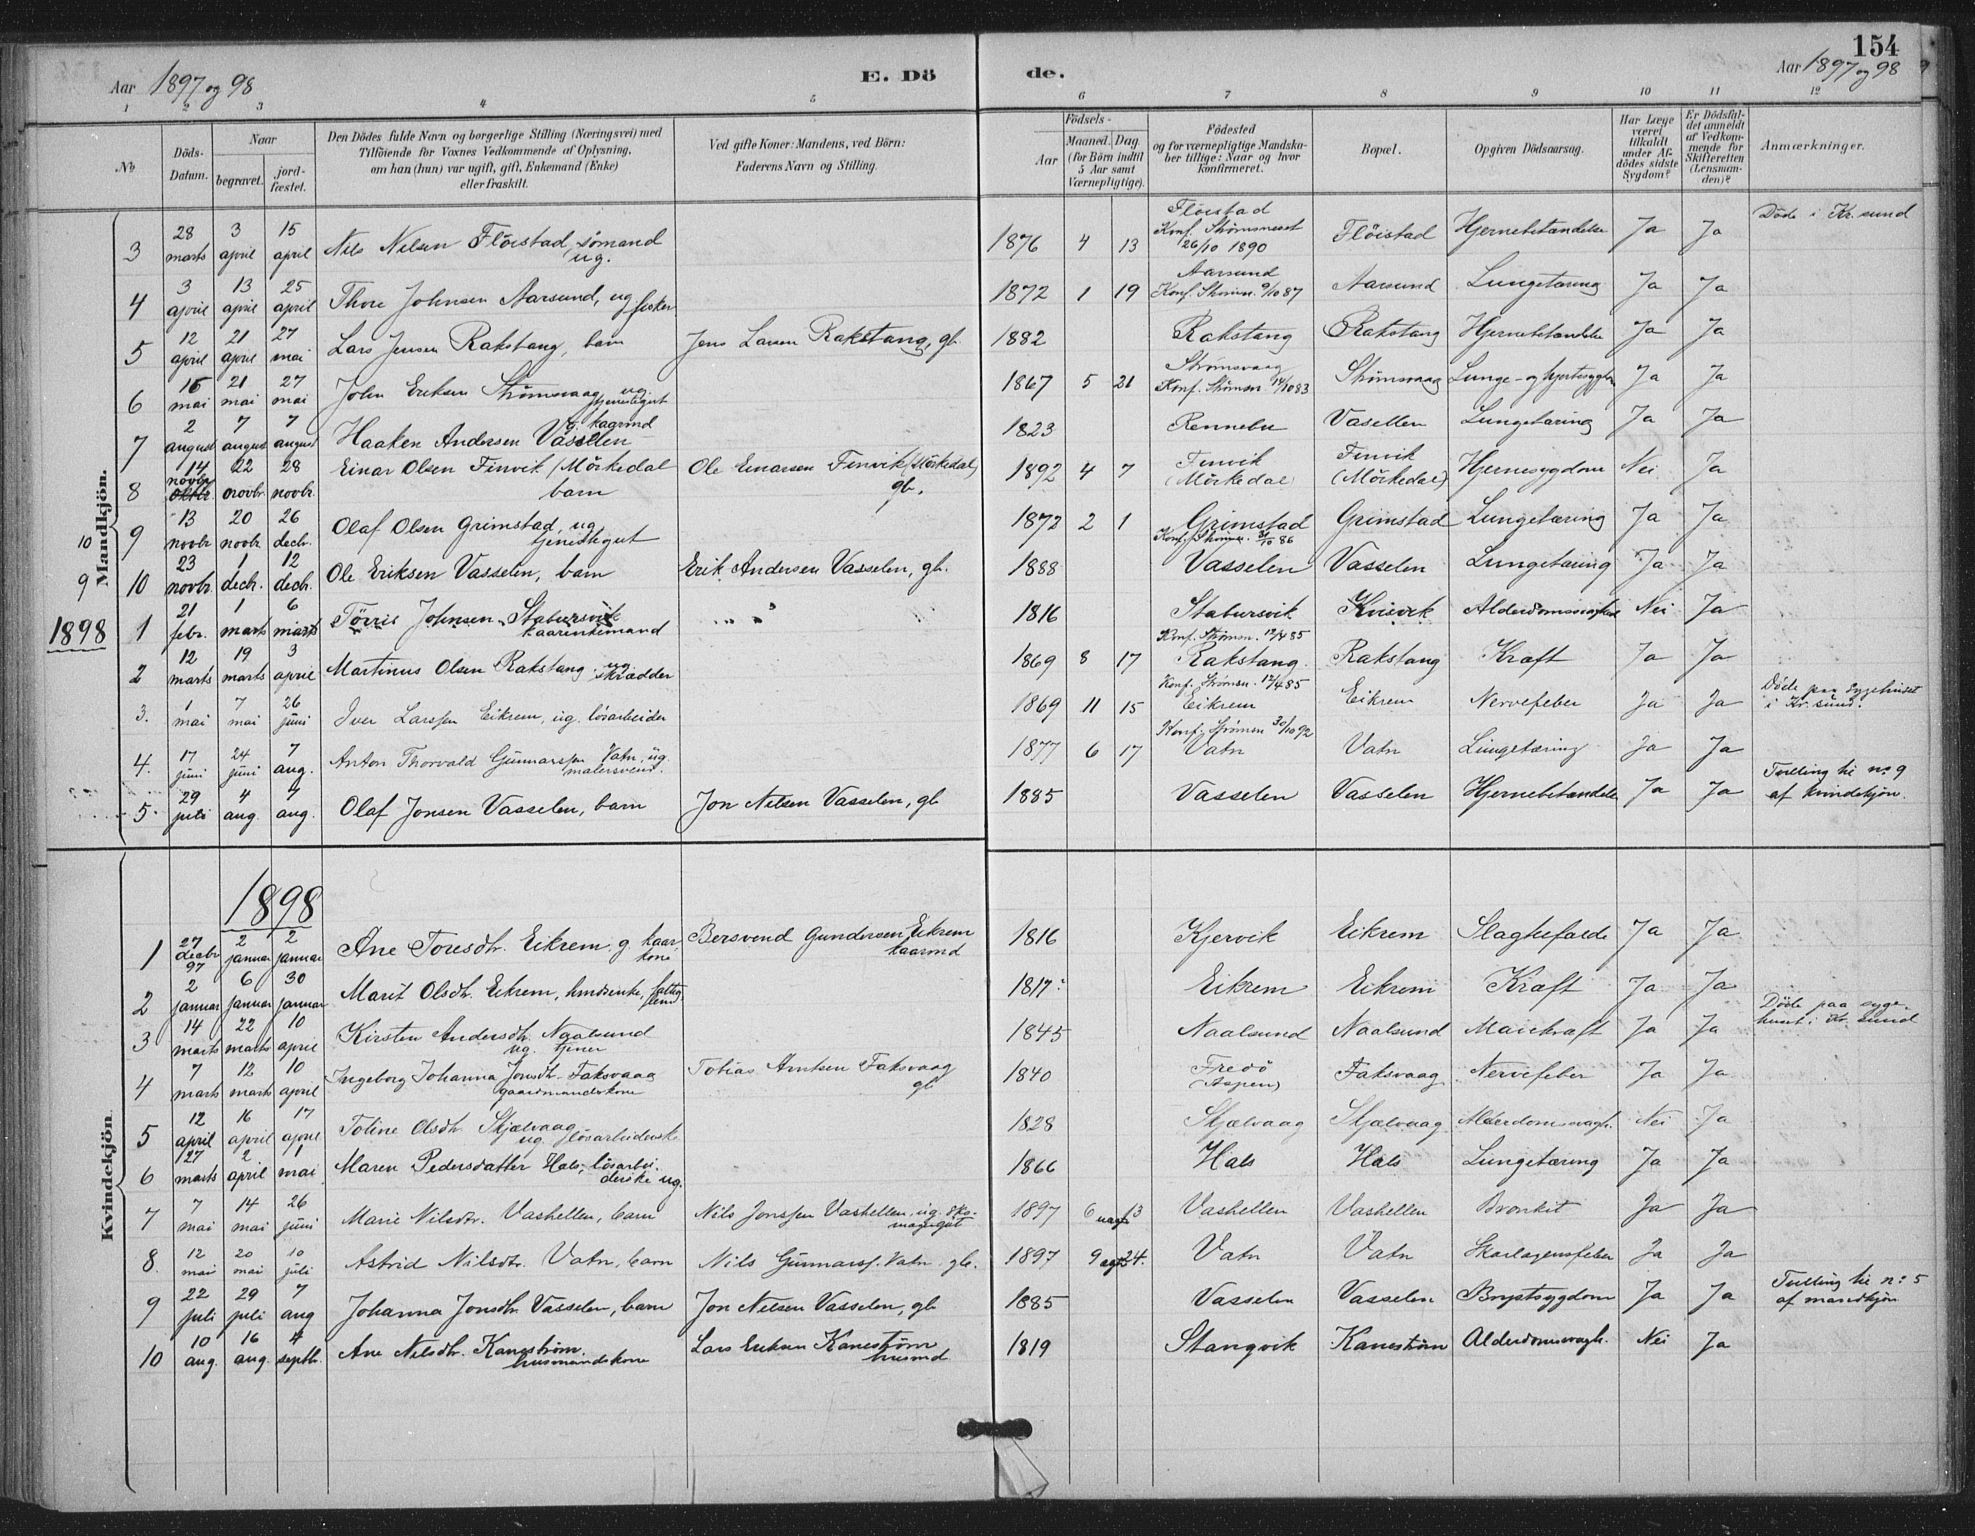 154
Aar 1897 og 98
E. Dö
de.
Aar 1897 og 98
1 2 3 4 5 6 7 8 9 10 11 12
No
Döds-Datum.
Naar
begravet.
jord-fæstet.
Den Dödes fulde Navn og borgerlige Stilling (Næringsvei) med
Tilföiende for Voxnes Vedkommende af Oplysning,
om han (hun) var ugift, gift, Enkemand (Enke)
eller fraskilt.
Ved gifte Koner: Mandens, ved Börn:
Faderens Navn og Stilling.
Födsels-
Aar
Maaned. Dag
(for Börn indtil
5 Aar samt
Værnepligtige).
Födested
og for værnepligtige Mandska-
ber tillige: Naar og hvor
konfirmeret.
Bopæl.
Opgiven Dödsaarsag.
Har Læge
været
tilkaldt
under Af-
dödes sidste
Sygdom?
Er Dödsfal-
det anmeldt
af Vedkom-
mende for
Skifteretten
(Lensman-
den)?
Anmærkninger.
Mandkjön.
3 28 marts 3 april 15 april Nils Nilsen Flöistad, sömand ug. 1876 4 13 Flöistad Konf. Strømsneset 26/10 1890 Flöistad Hjernebetændelse Ja Ja Döde i Kr.sund
4 3 april 13 april 25 april Thore Johnsen Aarsund, ug fisker 1872 1 19 Aarsund Konf. Strømsn. 9/10 87 Aarsund Lungetæring Ja Ja
5 12 april 21 april 27 mai Lars Jensen Rakstang, barn Jens Larsen Rakstang, gb. 1882 Rakstang Rakstang Hjernebetændelse Ja Ja
6 15 mai 21 mai 27 mai John Eriksen Strømsvaag ug tjenestegut 1867 5 21 Strømsvaag Konf. Strømsn. 14/10 83 Strømsvaag Lunge- og hjertesygdom Ja Ja
7 2 august 7 august 7 august Haaken Andersen Vasellen g. kaarmd 1823 Rennebu Vasellen Lungetæring Ja Ja
8 14 novbr oktbr. 22 novbr. 28 novbr. Einar Olsen Finvik (Mörkedal barn Ole Einarsen Finvik (Mörkedal) gb. 1892 4 7 Finvik (Mörkedal) Finvik (Mörkedal) Hjernesygdom Nei Ja
10
9 13 novbr 20 novbr. 26 decbr. Olaf Olsen Grimstad, ug tjenestegut 1872 2 1 Grimstad Konf. Strømsn. 31/10 86 Grimstad Lungetæring Ja Ja
9
10 23 novbr. 1 decbr. 12 decbr. Ole Eriksen Vasselen, barn Erik Andersen Vasselen, gb. 1888 Vasselen Vasselen Lungetæring Ja Ja
1898
1 21 febr. 1 marts 6 marts Törris Johnsen Stabursvik kaarenkemand 1816 Stabursvik Kvisvik Alderdomssvaghed Nei Ja
2 12 marts 19 marts 3 april Martinus Olsen Rakstang ug skrædder 1869 8 17 Konf. Strømsn. 12/4 85 Rakstang Rakstang Kræft Ja Ja
3. 1 mai 7 mai 26 juni Iver Larssen Eikrem, ug. lösarbeider 1869 11 15 Konf. Strømsn. 12/4 85 Eikrem Eikrem Nervefeber Ja Ja Döde paa Sygehuset i Kr.sund.
4. 17 juni 24 juni 7 aug. Anton Thorvald Gunnarssn Vatn, ug. malersvend. 1877 6 17 Konf. Strömsn 30/10 92 Vatn Vatn Lungetæring Ja Ja
5. 29 juli 4 aug. 7 aug. Olaf Jonsen Vasselen, barn Jon Nilsen Vasselen, gb 1885 Vasselen Vasselen Hjernebetændelse Ja Ja Tvilling til no 9 af kvindekjön.
Kvindekjön
1898
1 27 decbr 97 2 januar 2 januar Ane Toresdtr. Eikrem g. kaarkone Bersvend Gundersen Eikrem kaarmd 1816 Kjervik Eikrem Slagtilfælde Ja Ja
2 2 januar 6 januar 30 januar Marit Olsdtr. Eikrem, husmenke, fattiglem 1817 Eikrem Eikrem Kræft Ja Ja
3 14 marts 22 marts 10 april Kirsten Andersdtr. Naalsund ug. tjener 1845 Naalsund Naalsund Mavekræft Ja Ja Döde paa syge-huset i Kr.sund
4 7 marts 12 marts 10 april Ingeborg Johanna Jonsdtr. Faksvaag gaardmandskone Tobias Arntsen Faksvaag gb 1840 Fredö (Aspen) Faksvaag Nervefeber Ja Ja
5 12 april 16 april 17 april Toline Olsdtr. Skjelvaag ug. lösarbeiderske 1828 Skjælvaag Skjælvaag Alderdomssvagh. Nei Ja
6 27 marts 2 april 1 mai Maren Pedersdatter Hals, lösarbei-derske ug. 1866 Hals Hals Lungetæring Ja Ja
7 7 mai 14 mai 26 juni Marie Nilsdtr. Vashellen, barn Nils Jonssen Vashellen, ug. sko-magergut 1897 6 13 Vashellen Vashellen Bronkit Ja Ja
8. 12 mai 20 mai 10 juli Astrid Nilsdtr. Vatn, barn Nils Gunnarss. Vatn gb. 1897 9 24. Vatn Vatn Skarlagensfeber Ja Ja
9 22 juli 29 juli 7 aug Johanna Jonsdtr. Vasselen, barn Jon Nilsen Vasselen, gb 1885 Vasselen Vasselen Brystsygdom Ja Ja Tvilling til n: 5 af mandkjön
10 10 aug. 16 aug. 4 septbr. Ane Nilsdtr. Kanestrøm. husmandskone Lars Eriksen Kanestrøm husmd 1819 Stangvik Kanestrøm Alderdomssvagh. Nei Ja